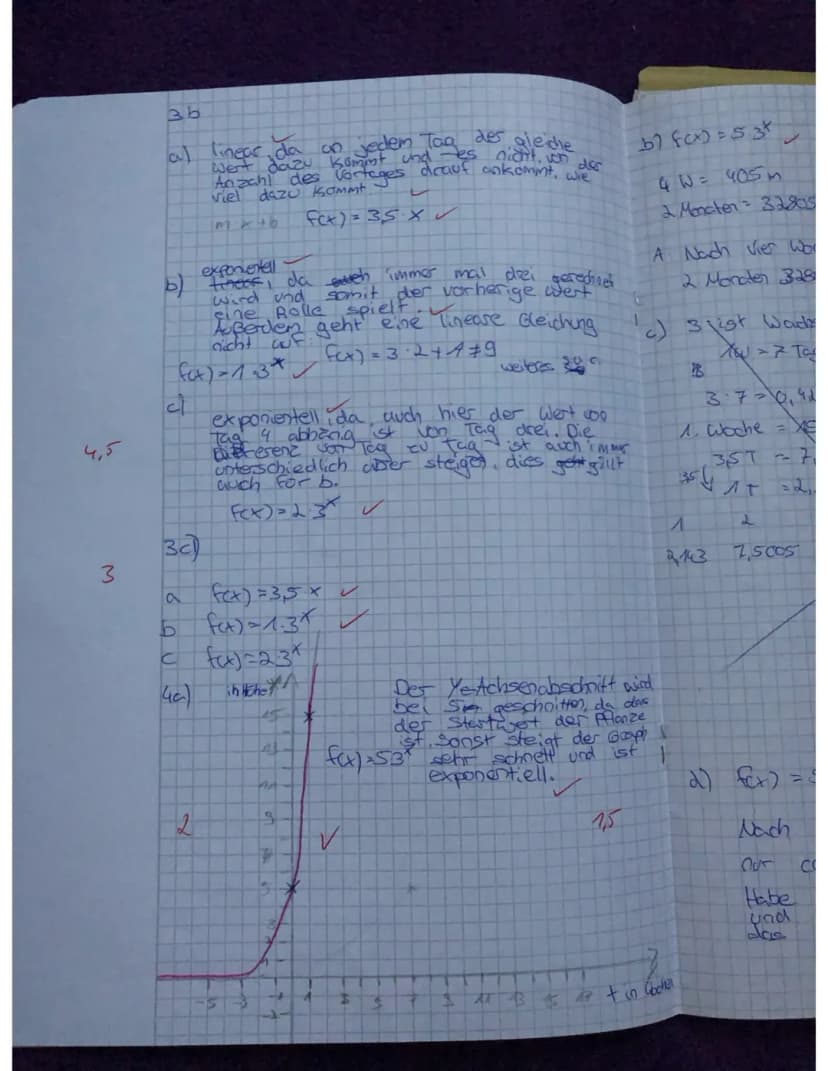 3b
a) linear, da an jedem Tag der gleiche
Wert dazu kommt und es nicht von der
Anzahl des Vortages drauf ankommt, wie
viel dazu kommt
m x + b f(x) = 3,5 · x
b) exponentiell
da immer mal drei gerechnet
wird und somit der vorherige Wert
eine Rolle spielt.
Außerdem geht eine lineare Gleichung
nicht auf:
f(x) = 3 · 2 + 1 ≠ 9
f(x) = 1 · 3^x
weiteres
c)
exponentiell, da auch hier der Wert von
Tag 4 abhängig ist von Tag drei. Die
Differenz von Tag zu Tag ist auch immer
unterschiedlich aber steigend, dies gilt
auch für b.
4,5
f(x) = 2 · 3^x
3c)
3
a f(x) = 3,5 · x
b f(x) = 1 · 3^x
c f(x) = 2 3^x
4a)
Der Y-Achsenabschnitt wird
bei 5 geschnitten, da das
der Startwert der Pflanze
ist. Sonst steigt der Graph
f(x) = 5 3^x sehr schnell und ist
exponentiell.
2
1,5
15
9
5
3
-5 -3 -1 1 3 5 7 9 11 13
t in Wochen
b) f(x) = 5 3^x
4 W = 405 m
2 Monaten = 32805
A Nach vier Wo
2 Monaten 328
c) 3 ist Wachs
1W = 7 Tag
3 : 7 = 0,42
1. Woche =
3,5 T = 7,
1 T = 2,
1 2
2,143 7,5005
d) f(x) =
Nach
nur
Habe
und
das